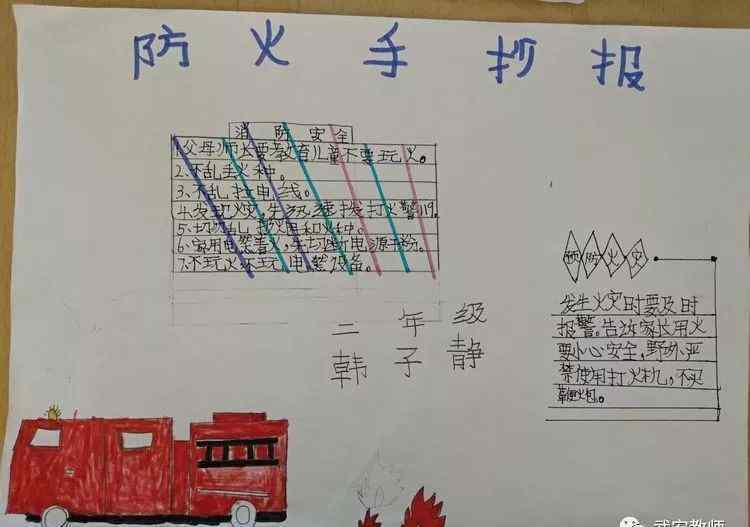 防火手抄报
消防安全
1父母师长要教育儿童不要玩火。
2、不乱丢火种。
3、不乱拉电线。
4.发现火灾,先级速拨打火警119。
5、切勿乱扔火种。
6、家用电器着火,先切断电源
7.不玩火不玩电器设备。
二年级
韩子静
预防火灾
发生火灾时要及时
报警。告诉家长用火
要小心安全,野外严
禁使用打火机,不买
鞭炮。
武安教师